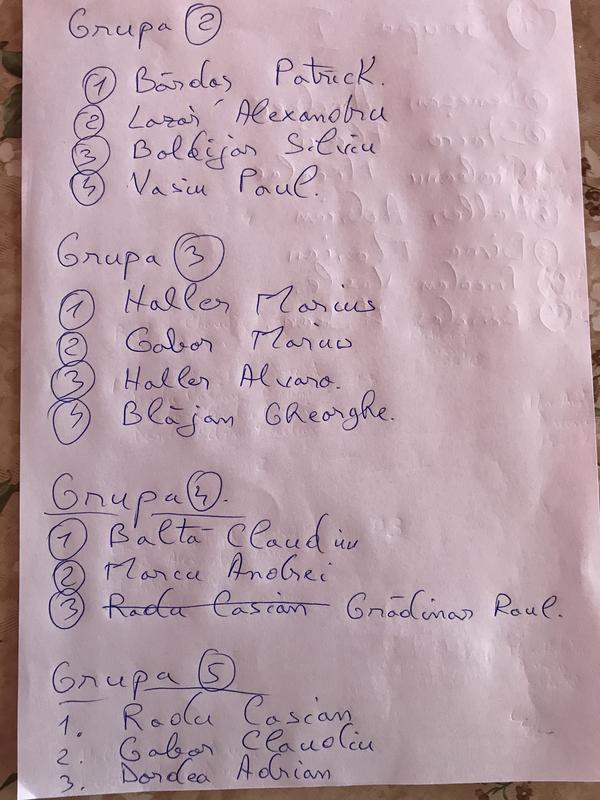 Grupa 2
1 Bărdaș Patrick.
2 Lazăr Alexandru
3 Boldijar Silviu
4 Vasiu Paul.
Grupa 3
1 Haller Marius
2 Gabor Marius
3 Haller Alvaro.
4 Blăjan Gheorghe.
Grupa 4.
1 Balta Claudiu
2 Marcu Andrei
3 Radu Casian Grădinar Raul.
Grupa 5
1. Radu Casian
2. Gabor Claudiu
3. Dordea Adrian